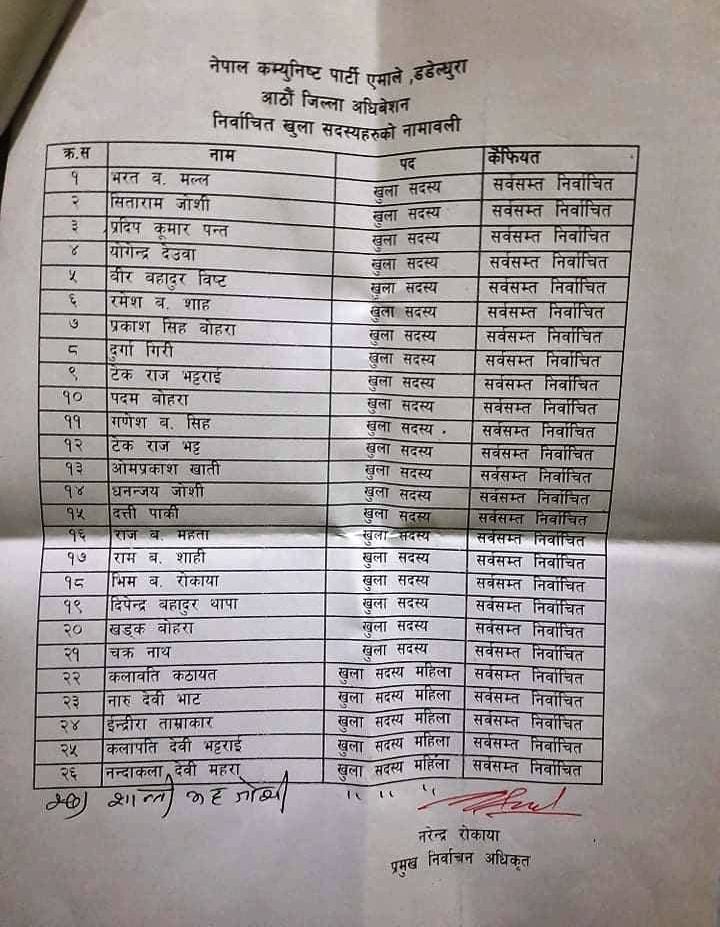 नेपाल कम्युनिष्ट पार्टी एमाले ,डडेल्धुरा
आठौं जिल्ला अधिबेशन
निर्वाचित खुला सदस्यहरुको नामावली
क्र.स नाम पद कैफियत
१ भरत ब. मल्ल खुला सदस्य सर्वसम्त निर्वाचित
२ सिताराम जोशी खुला सदस्य सर्वसम्त निर्वाचित
३ प्रदिप कूमार पन्त खुला सदस्य सर्वसम्त निर्वाचित
४ योगेन्द्र देउवा खुला सदस्य सर्वसम्त निर्वाचित
५ वीर बहादुर विष्ट खुला सदस्य सर्वसम्त निर्वाचित
६ रमेश ब. शाह खुला सदस्य सर्वसम्त निर्वाचित
७ प्रकाश सिह बोहरा खुला सदस्य सर्वसम्त निर्वाचित
८ दुर्गा गिरी खुला सदस्य सर्वसम्त निर्वाचित
९ टेक राज भट्टराई खुला सदस्य सर्वसम्त निर्वाचित
१० पदम बोहरा खुला सदस्य सर्वसम्त निर्वाचित
११ गणेश ब. सिह खुला सदस्य . सर्वसम्त निर्वाचित
१२ टेक राज भट्ट खुला सदस्य सर्वसम्त निर्वाचित
१३ ओमप्रकाश खाती खुला सदस्य सर्वसम्त निर्वाचित
१४ धनन्जय जोशी खुला सदस्य सर्वसम्त निर्वाचित
१५ दत्ती पाकी खुला सदस्य सर्वसम्त निर्वाचित
१६ राज ब. महता खुला सदस्य सर्वसम्त निर्वाचित
१७ राम ब. शाही खुला सदस्य सर्वसम्त निर्वाचित
१८ भिम ब. रोकाया खुला सदस्य सर्वसम्त निर्वाचित
१९ दिपेन्द्र बहादुर थापा खुला सदस्य सर्वसम्त निर्वाचित
२० खडक बोहरा खुला सदस्य सर्वसम्त निर्वाचित
२१ चक्र नाथ खुला सदस्य सर्वसम्त निर्वाचित
२२ कलावति कठायत खुला सदस्य महिला सर्वसम्त निर्वाचित
२३ नारु देवी भाट खुला सदस्य महिला सर्वसम्त निर्वाचित
२४ ईन्द्रीरा ताम्राकार खुला सदस्य महिला सर्वसम्त निर्वाचित
२५ कलापति देवी भट्टराई खुला सदस्य महिला सर्वसम्त निर्वाचित
२६ नन्दाकला देवी महरा खुला सदस्य महिला सर्वसम्त निर्वाचित
२७) शान्ती जोशी " " "
नरेन्द्र रोकाया
प्रमुख निर्वाचन अधिकृत